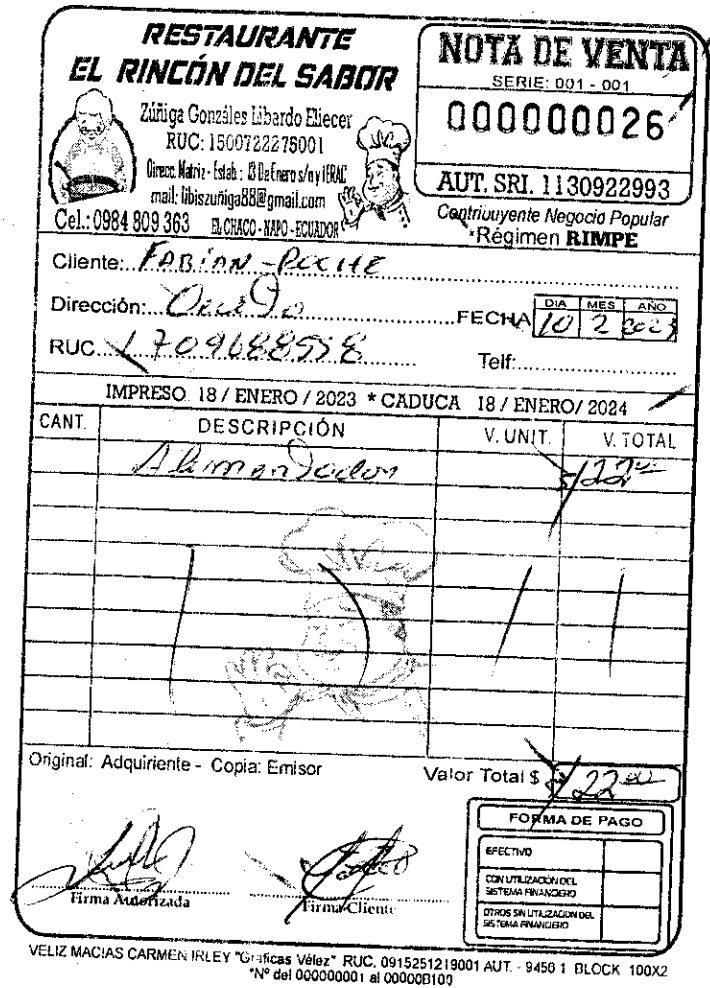 RESTAURANTE
EL RINCÓN DEL SABOR
Zúñiga Gonzáles Libardo Eliecer
RUC: 1500722275001
Direcc. Matriz - Estab.: 13 De Enero s/n y
mail: libiszuñiga88@gmail.com
Cel.: 0984 809 363 EL CHACO - NAPO - ECUADOR
NOTA DE VENTA
SERIE: 001 - 001
000000026
AUT. SRI. 1130922993
Contribuyente Negocio Popular
Régimen RIMPE
Cliente: FABIAN - POCHE
Dirección:
FECHA DIA MES AÑO
10 2 2023
RUC. 1709688558
Telf:
IMPRESO 18 / ENERO / 2023 * CADUCA 18 / ENERO / 2024
CANT. DESCRIPCIÓN V. UNIT. V. TOTAL
$/22.00
Original: Adquiriente - Copia: Emisor
Valor Total $ $/22.00
FORMA DE PAGO
EFECTIVO
CON UTILIZACIÓN DEL
SISTEMA FINANCIERO
OTROS SIN UTILIZACIÓN DEL
SISTEMA FINANCIERO
Firma Autorizada
Firma Cliente
VELIZ MACIAS CARMEN IRLEY "Gráficas Vélez" RUC. 0915251219001 AUT. - 9456 1 BLOCK 100X2
"Nº del 000000001 al 000000100